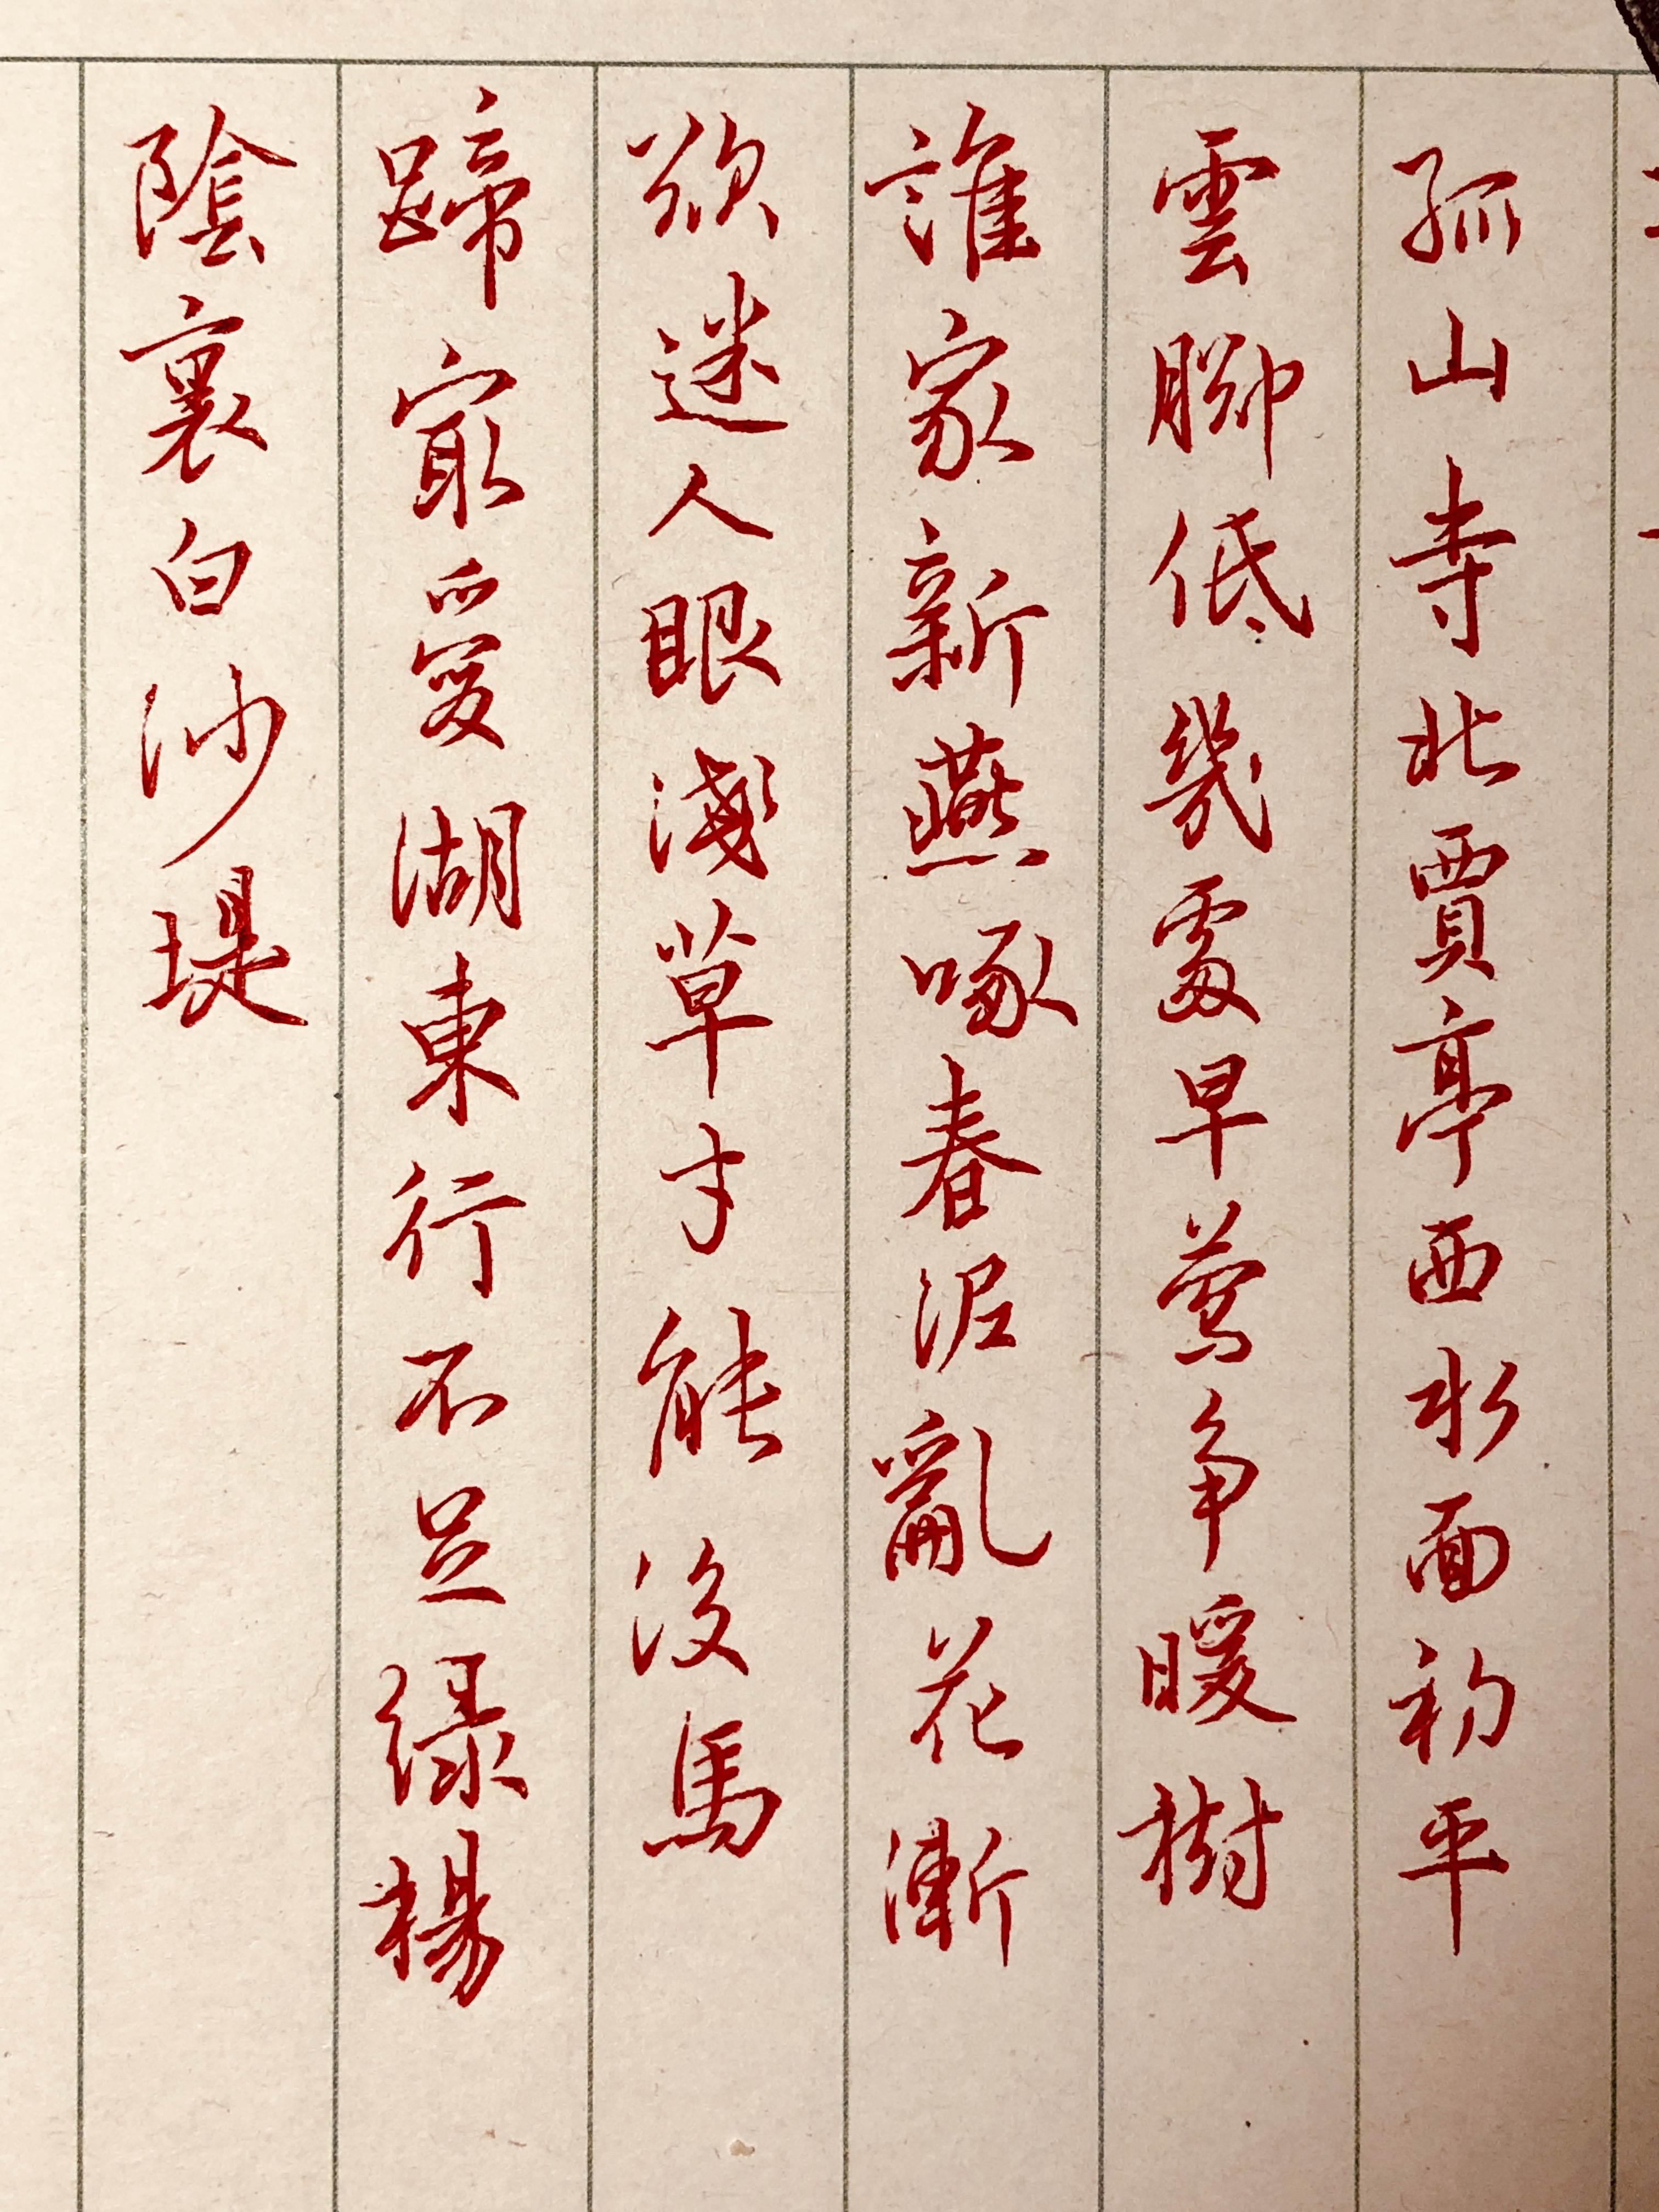 孤山寺北賈亭西水面初平
雲腳低幾處早鶯爭暖樹
誰家新燕啄春泥亂花漸
欲迷人眼淺草才能沒馬
蹄最愛湖東行不足綠楊
陰裏白沙堤